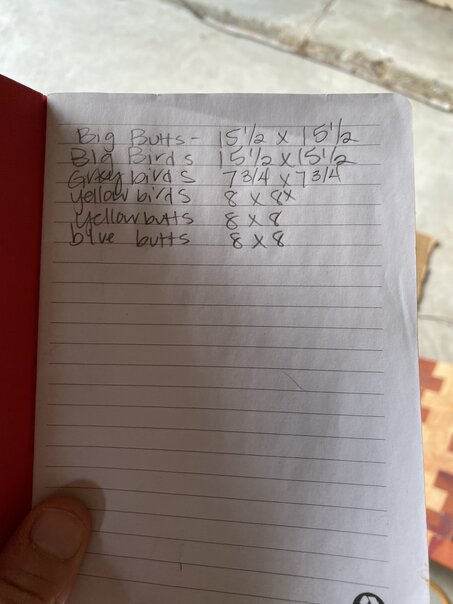 Big Butts - 15 1/2 x 15 1/2
Big Birds 15 1/2 x 15 1/2
Gray birds 7 3/4 x 7 3/4
Yellow birds 8 x 8x
Yellow butts 8 x 8
blue butts 8 x 8